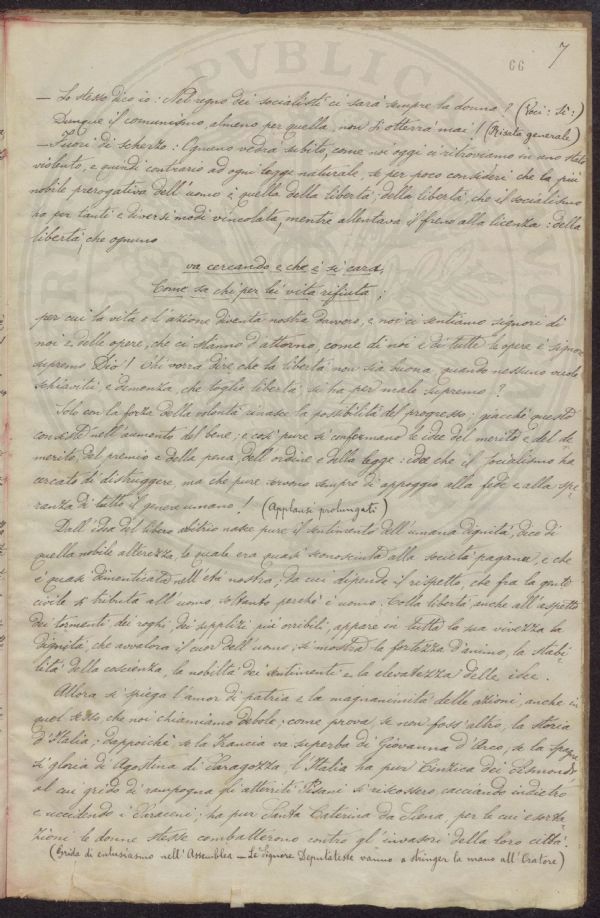 66 7
— Lo stesso dico io: Nel regno dei socialisti ci sarà sempre la donna? (Voci: Sì:)
Dunque il comunismo, almeno per quella, non si otterrà mai! (Risata generale)
— Fuori di scherzo: Ognuno vedrà subito, come noi oggi ci ritroviamo in uno stato
violento, e quindi contrario ad ogni legge naturale, se per poco consideri che la più
nobile prerogativa dell'uomo è quella della libertà; della libertà, che il socialismo
ha per tanti e diversi modi vincolata, mentre allentava il freno alla licenza: della
libertà, che ognuno
va cercando e che è sì cara,
Come sa chi per lei vita rifiuta;
per cui la vita e l'azione diventa nostra davvero, e noi ci sentiamo signori di
noi e delle opere, che ci stanno d'attorno, come di noi e di tutte le opere è signore
supremo Dio! Chi vorrà dire che la libertà non sia buona, quando nessuno vuole
schiavitù, e demenza, che toglie libertà, si ha per male supremo?
Solo con la forza della volontà nasce la possibilità del progresso; giacchè questo
consiste nell'aumento del bene; e così pure si confermano le idee del merito e del de
merito, del premio e della pena, dell'ordine e della legge: idee che il socialismo ha
cercato di distruggere, ma che pure servono sempre di appoggio alla fede e alla spe
ranza di tutto il genere umano! (Applausi prolungati)
Dall'idea del libero arbitrio nasce pure il sentimento dell'umana dignità, dico di
quella nobile alterezza, la quale era quasi sconosciuta alla società pagana, e che
è quasi dimenticata nell'età nostra, da cui dipende il rispetto, che fra la gente
civile si tributa all'uomo soltanto perchè è uomo. Colla libertà, anche all'aspetto
dei tormenti, dei roghi, dei supplizi più orribili, appare in tutta la sua vivezza la
dignità, che avvalora il cuor dell'uomo; si mostra la fortezza d'animo, la stabi-
lità della coscienza, la nobiltà dei sentimenti e la elevatezza delle idee.
Allora si spiega l'amor di patria e la magnanimità delle azioni, anche in
quel sesso, che noi chiamiamo debole; come prova, se non foss'altro, la storia
d'Italia; dappoichè, se la Francia va superba di Giovanna d'Arco, se la Spagna
si gloria di Agostina di Saragozza, l'Italia ha pur Cinzica dei Sismondi
al cui grido di rampogna gli atterriti Pisani si riscossero, cacciando indietro
e uccidendo i Saraceni; ha pur Santa Caterina da Siena, per le cui esorta-
zioni le donne stesse combatterono contro gl'invasori della loro città.
(Grida di entusiasmo nell'Assemblea — Le Signore Deputatesse vanno a stringer la mano all'Oratore)